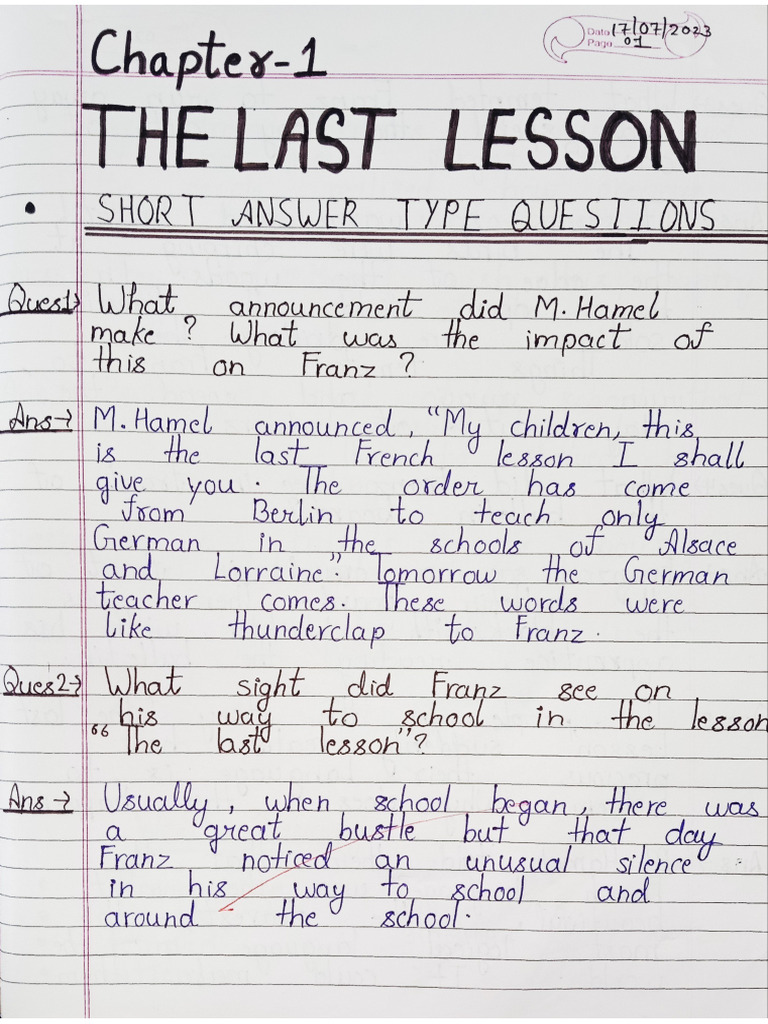 Date 17/07/2023
Page 01
Chapter-1
THE LAST LESSON
• SHORT ANSWER TYPE QUESTIONS
Ques1→ What announcement did M. Hamel
make? What was the impact of
this on Franz?
Ans→ M. Hamel announced, "My children, this
is the last French lesson I shall
give you. The order has come
from Berlin to teach only
German in the schools of Alsace
and Lorraine". Tomorrow the German
teacher comes. These words were
like thunderclap to Franz.
Ques2→ What sight did Franz see on
his way to school in the lesson
"The last lesson"?
Ans→ Usually, when school began, there was
a great bustle but that day
Franz noticed an unusual silence
in his way to school and
around the school.